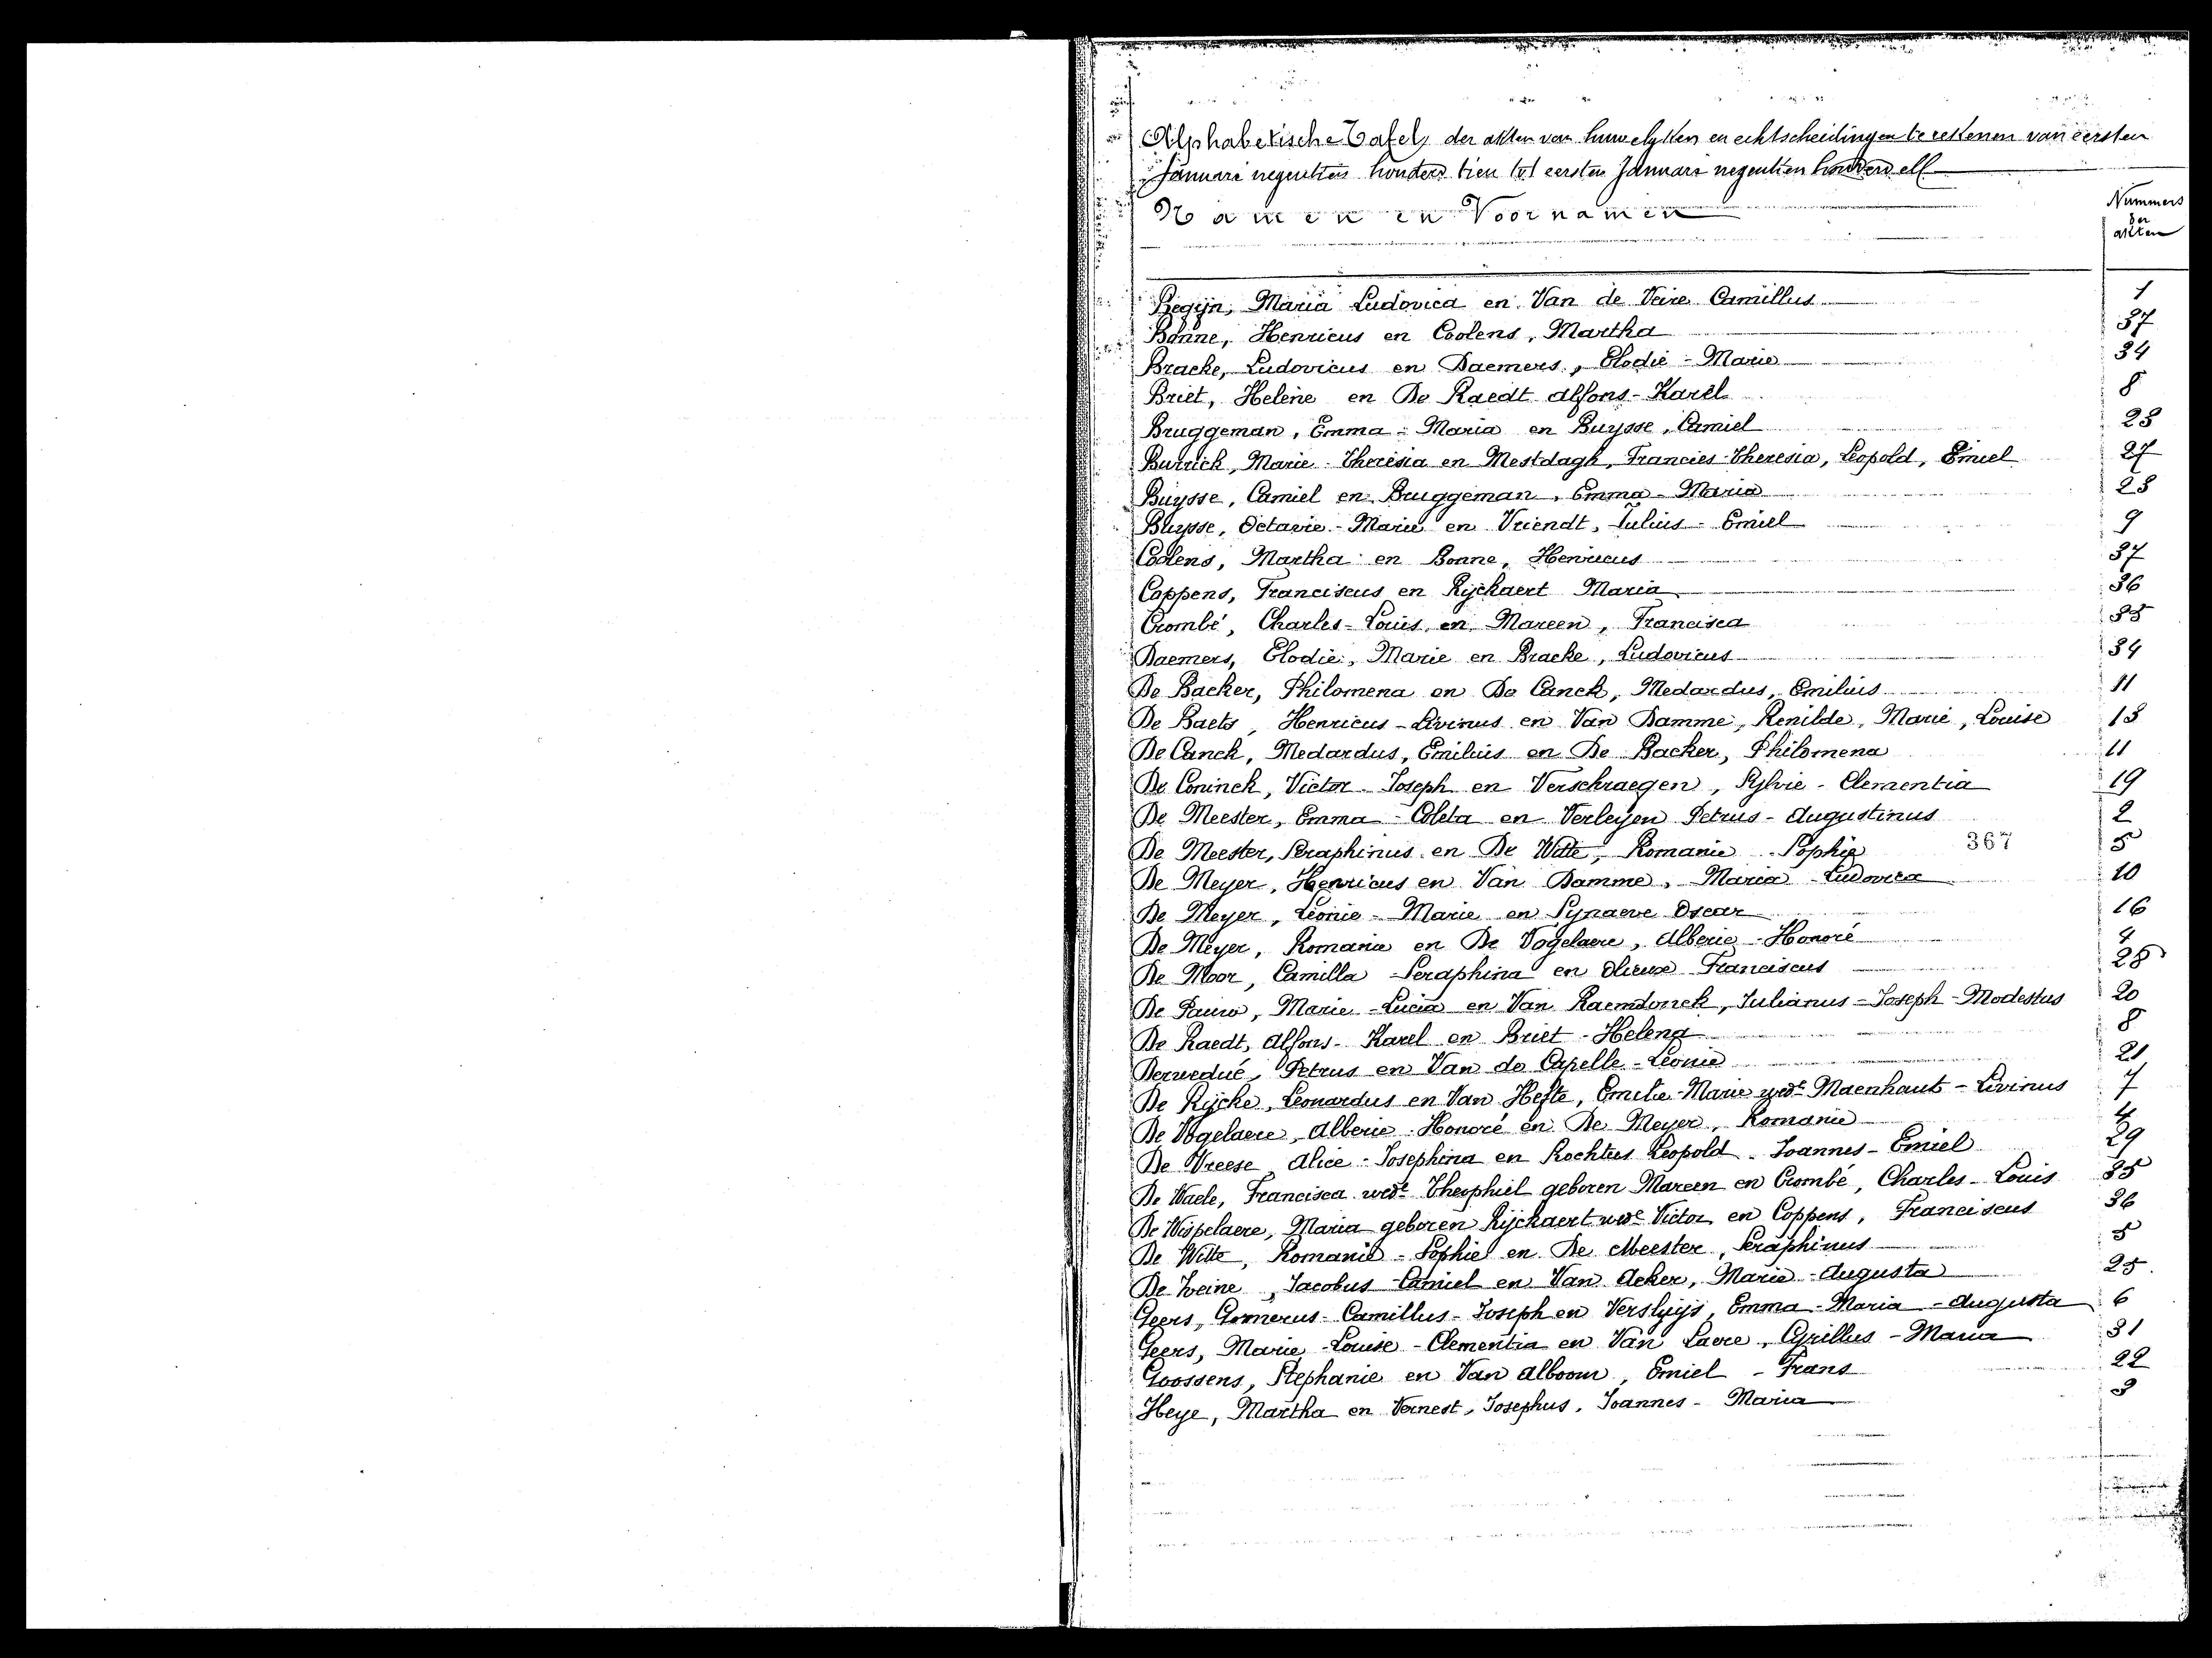 Alphabetische Tafel der akten van huwelyken en echtscheidingen te rekenen van eersten
Januari negentien honderd tien tot eersten Januari negentien honderd elf
Namen en Voornamen
Nummers
der
akten
Begijn, Maria Ludovica en Van de Veire Camillus 1
Bonne, Henricus en Coolens, Martha 37
Bracke, Ludovicus en Daemers, Elodie - Marie 34
Briet, Helene en De Raedt Alfons - Karel 8
Bruggeman, Emma - Maria en Buysse, Camiel 23
Burrick, Marie - Theresia en Mestdagh, Francies - Theresia, Leopold, Emiel 27
Buysse, Camiel en Bruggeman, Emma - Maria 23
Buysse, Octavie - Marie en Vriendt, Julius - Emiel 9
Coolens, Martha en Bonne, Henricus 37
Coppens, Franciscus en Rijckaert Maria 36
Crombé, Charles - Louis en Mareen, Francisca 35
Daemers, Elodie, Marie en Bracke, Ludovicus 34
De Backer, Philomena en De Canck, Medardus, Emilius 11
De Baets, Henricus - Livinus en Van Damme, Renilde, Marie, Louise 13
De Canck, Medardus, Emilius en De Backer, Philomena 11
De Coninck, Victor - Joseph en Verschraegen, Sylvie - Clementia 19
De Meester, Emma - Coleta en Verleyen Petrus - Augustinus 2
De Meester, Seraphinus en De Witte, Romanie - Sophie 367 5
De Meyer, Henricus en Van Damme, Maria - Ludovica 10
De Meyer, Leonie - Marie en Synaeve Oscar 16
De Meyer, Romanie en De Vogelaere, Alberic - Honoré 4
De Moor, Camilla - Seraphina en Olieux Franciscus 28
De Pauw, Marie - Lucia en Van Raemdonck, Julianus - Joseph - Modestus 20
De Raedt, Alfons - Karel en Briet - Helena 8
Derwedué, Petrus en Van de Capelle - Leonie 21
De Rijcke, Leonardus en Van Hefte, Emelie - Marie wede Maenhaut - Livinus 7
De Vogelaere, Alberic - Honoré en De Meyer, Romanie 4
De Vreese, Alice - Josephina en Rochtus Leopold - Joannes - Emiel 29
De Waele, Francisca wede Theophiel geboren Mareen en Crombé, Charles - Louis 35
De Wispelaere, Maria geboren Rijckaert wede Victor en Coppens, Franciscus 36
De Witte, Romanie - Sophie en De Meester, Seraphinus 5
De Zweine, Jacobus - Camiel en Van Acker, Marie - Augusta 25
Geers, Gomerus - Camillus - Joseph en Versluijs, Emma - Maria - Augusta 6
Geers, Marie - Louise - Clementia en Van Laere, Cyrillus - Maria 31
Goossens, Stephanie en Van Alboom, Emiel - Frans 22
Heye, Martha en Vernest, Josephus, Joannes - Maria 3